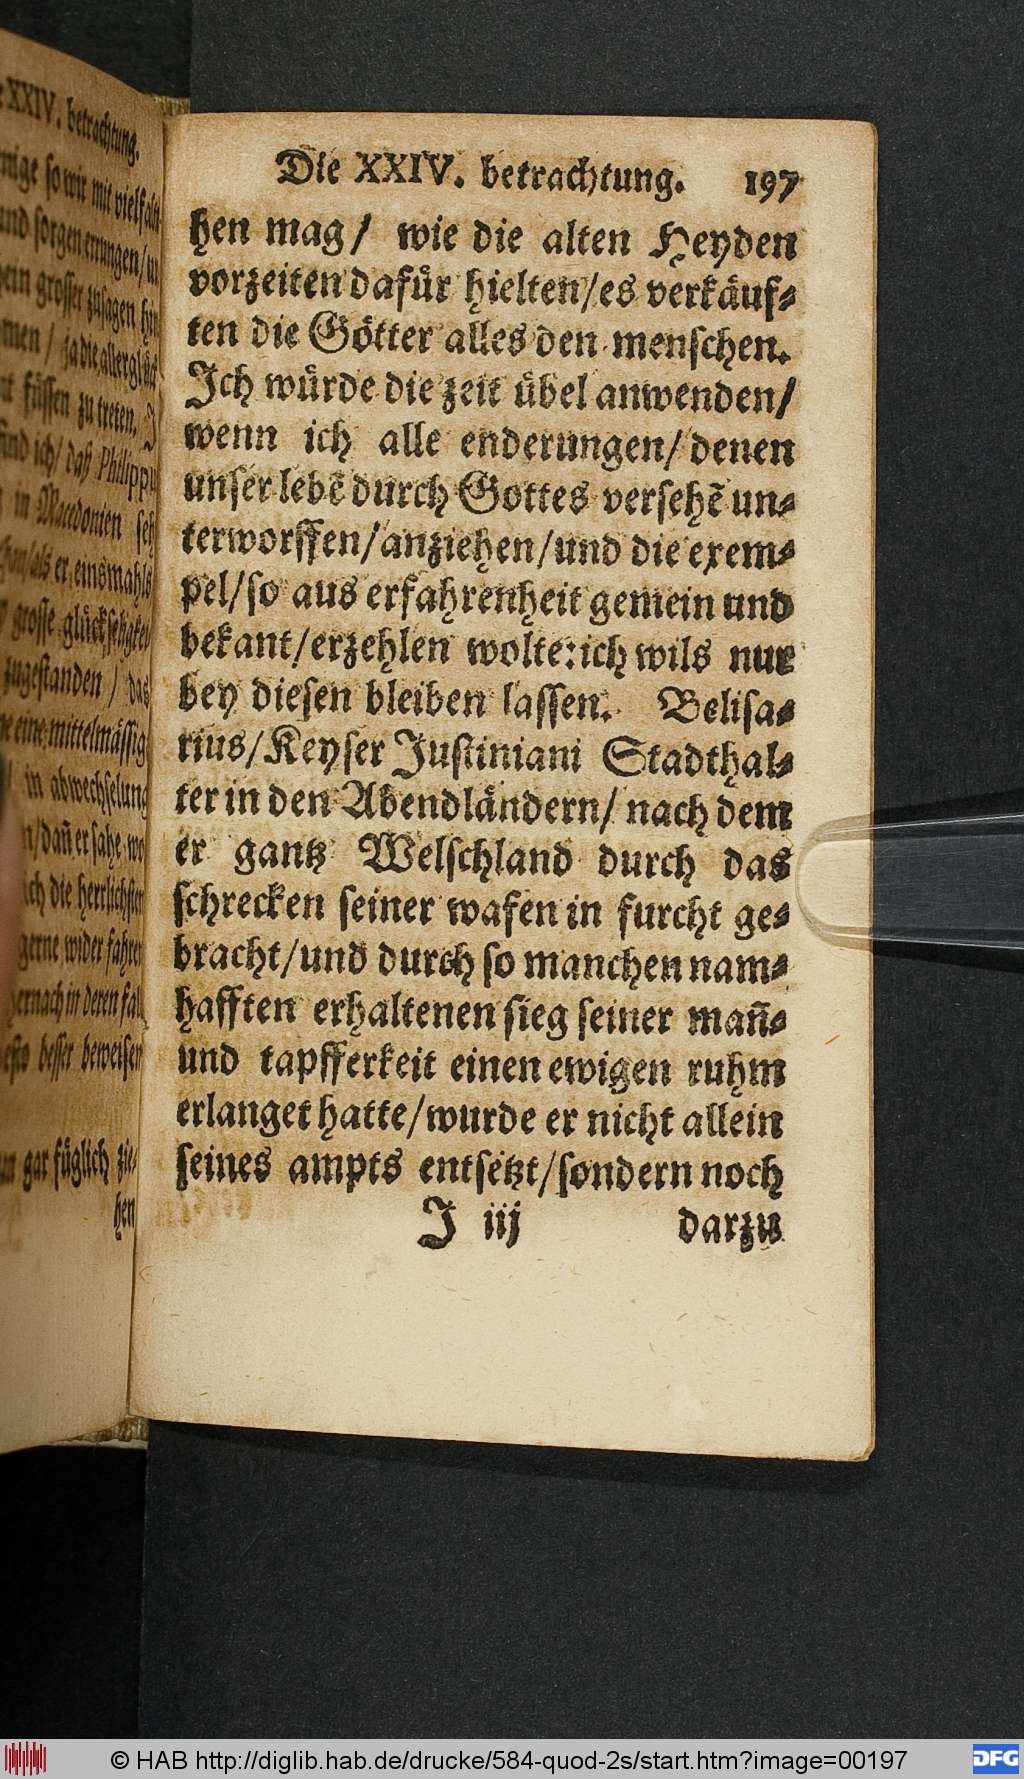 e XXIV. betrachtung.
nige so wir mit vielfalt
und sorgen errungen/
grosser zusagen
men / ja die allerglück
füssen zu treten. I
find ich/ daß Philippu
in Macedonien
als er einsmahls
grosse glückseligkei
zugestanden / das
eine mittelmässig
in abwechselung
/dañ er sahe wo
ich die herrlichsten
gerne wider fahren
hernach in deren fall
desto besser beweisen
gar füglich zie-
hen
Die XXIV. betrachtung. 197
hen mag/ wie die alten Heyden
vorzeiten dafür hielten/es verkäuf-
ten die Götter alles den menschen.
Ich würde die zeit übel anwenden/
wenn ich alle enderungen/denen
unser lebē durch Gottes versehē un-
terworffen/anziehen/und die exem-
pel/so aus erfahrenheit gemein und
bekant/erzehlen wolte:ich wils nur
bey diesen bleiben lassen. Belisa-
rius/Keyser Justiniani Stadthal-
ter in den Abendländern/ nach dem
er gantz Welschland durch das
schrecken seiner wafen in furcht ge-
bracht/und durch so manchen nam-
hafften erhaltenen sieg seiner mañ-
und tapfferkeit einen ewigen ruhm
erlanget hatte/wurde er nicht allein
seines ampts entsetzt/sondern noch
I iij darzu
© HAB http://diglib.hab.de/drucke/584-quod-2s/start.htm?image=00197
DFG